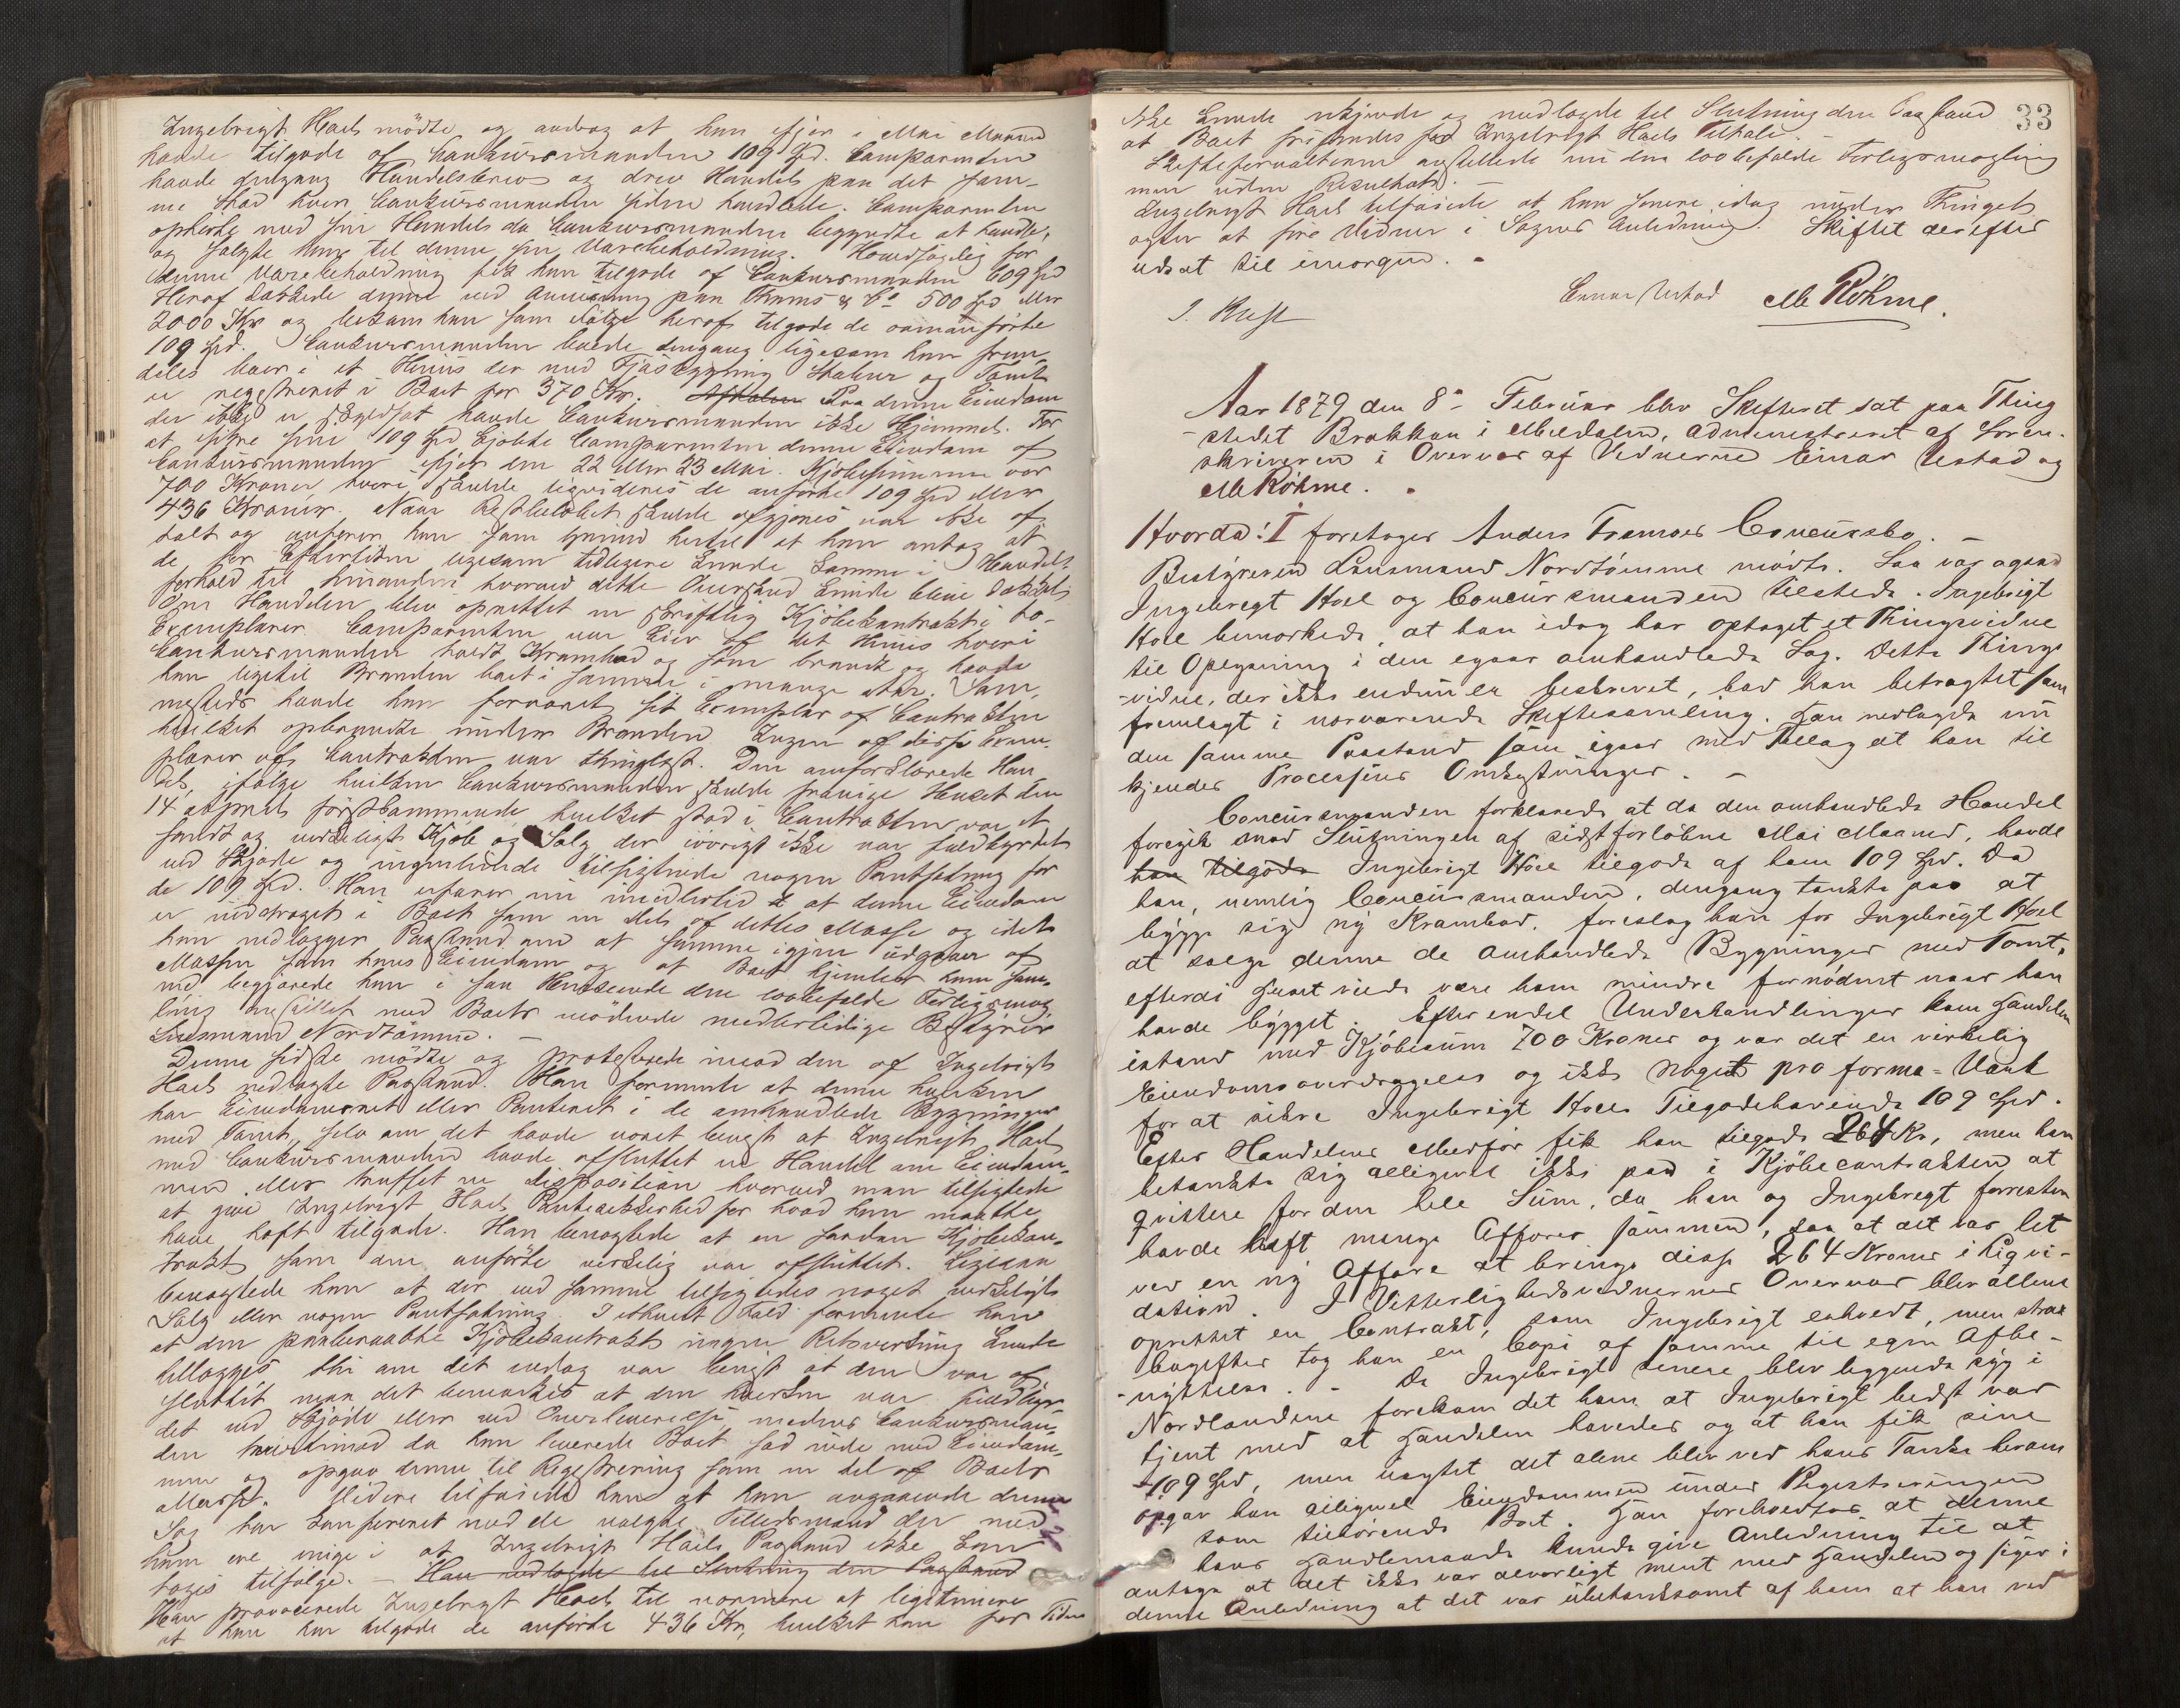 Ingebrigt Hoel mödte og androg at han ifjor i Mai Maaned
havde tilgode af Concursmanden 109 Spd. Comparenten
havde dengang Handelsbrev og drev Handel paa det sam-
me Sted hvor Concursmanden siden handlede. Comparenten
ophörte med sin Handel da Concursmanden begyndte at handle,
og solgte ham til denne sin Varebeholdning. Hovedsagelig for
denne Varebeholdning fik han tilgode af Concursmanden 609 Spd
Heraf dækkede denne ved Anvisning paa & Co 500 Spd eller
2000 Kr og bekom han som Fölge heraf tilgode de ovenanförte
109 Spd. Concursmanden boede dengang ligesom han frem-
deles boer i et Huus der med Fjøsbygning Stabur og Tomt
er registreret i Boet for 370 Kr. Paa denne Eiendom
der ikke er skyldsat havde Concursmanden ikke Hjemmel. For
at sikre sine 109 Spd kjöbte Comparenten denne Eiendom af
Concursmanden ifjor den 22 eller 23 Mai. Kjöbesummen var
700 Kroner, hvori skulde liqvideres de anförte 109 Spd eller
436 Kroner. Naar Restbelöbet skulde afgjöres var ikke af-
talt og anförer han som Grund hertil at han antog at
de for Eftertiden ligesom tidligere kunde komme i Handels
forhold til hinanden hvorved dette Overskud kunde blive dækket.
Om Handelen blev oprettet en skriftlig Kjöbekontrakt i to
Exemplarer. Comparenten var Eier af det Huus hvori
Concursmanden holdt Krambod og som brændte og havde
han ligetil Branden boet i samme i mange Aar. Sam-
mesteds havde han forvaret sit Exemplar af Contrakten
hvilket opbrændte under Branden. Ingen af disse Exem-
plarer af Contrakten var thinglæst. Den omforklarede Han-
del, ifölge hvilken Concursmanden skulde fravige Huset den
14 April förstkommende hvilket stod i Contrakten var et
sandt og virkeligt Kjöb og Salg der iövrigt ikke var fuldbyrdet
ved Skjöde og ingenlunde tilsigtede nogen Pantsætning for
de 109 Spd. Han erfarer nu imidlertid at denne Eiendom
er inddraget i Boet som en Del af dettes Masse og idet
han nedlægger Paastand om at samme igjen udgaaer af
Massen som hans Eiendom og at Boet kjendes ham sam-
ed begjærede han i saa Henseende den lovbefalede Forligsmæg-
ling anstillet med Boets mödende midlertidige Bestyrer
Lensmand Nordtömme. –
Denne sidste mödte og protesterede imod den af Ingebrigt
Hoel nedlagte Paastand. Han formente at denne hverken
har Eiendomsret eller Panteret i de omhandlede Bygninger
med Tomt, selv om det havde været bevist at Ingebrigt Hoel
med Concursmanden havde afsluttet en Handel om Eiendom-
men eller truffet en Disposition hvorved man tilsigtede
at give Ingebrigt Hoel Pantesikkerhed for hvad han maatte
have haft tilgode. Han benægtede at en saadan Kjöbekon-
trakt som den anförte virkelig var afsluttet. Ligesaa
benægtede han at der ved samme tilsigtedes noget virkeligt
Salg eller nogen Pantsætning. I ethvert Fald formente han
at den paaberaabte Kjöbekontrakt ingen Retsvirkning kunde
tillægges thi om det endog var bevist at den var af-
sluttet maa det bemærkes at den hverken var fuldbyr-
det ved Skjöde eller ved Overleverelse medens Concursman-
den tvertimod da han leverede Boet sad inde med Eiendom-
men og opgav denne til Registrering som en Del af Boets
Masse. Videre tilföiede han at han angaaende denne
Sag har konfereret med de valgte Tillidsmænd der med
ham ere enige i at Ingebrigt Hoels Paastand ikke kan
tages tilfölge. – Han nedlagde til Slutning den Paastand
Han provocerede Ingebrigt Hoel til nærmere at legitimere
at han har tilgode de anförte 436 Kr, hvilket han for Tiden
33
ikke kunde erkjende og nedlagde til Slutning den Paastand
at Boet frifindes for Ingebrigt Hoels Tiltale. –
Skifteforvalteren anstillede nu den lovbefalede Forligsmægling
men uden Resultat. –
Ingebrigt Hoel tilföiede at han senere idag under Thinget
agter at före Vidner i Sagens Anledning. Skiftet derefter
udsat til imorgen. –
Einar Ustad M Röhme.
Aar 1879 den 8de Februar blev Skifteret sat paa Thing
stedet Brækken i Meldalen, administreret af Soren-
skriveren i Overvær af Vidnerne Einar Ustad og
M Röhme.
Hvorda: I foretages Anders Concursbo. –
Bestyreren Lensmand Nordtömme mödte. Saa var ogsaa
Ingebregt Hoel og Concursmanden tilstede. Ingebrigt
Hoel bemærkede at han idag har optaget et Thingsvidne
til Oplysning i den igaar omhandlede Sag. Dette Things
-vidne, der ikke endnu er beskrevet, bad han betragtet som
fremlagt i nærværende Skiftesamling. Han nedlagde nu
den samme Paastand som igaar med Tillæg at han til
kjendes Processens Omkostninger. –
Concursmanden forklarede at da den omhandlede Handel
foregik mod Slutningen af sidstforlöbne Mai Maaned, havde
han tilgode Ingebrigt Hoel tilgode af ham 109 Spd. Da
han, nemlig Concursmanden, dengang tænkte paa at
bygge sig ny Krambod, foreslog han for Ingebrigt Hoel
at sælge denne de omhandlede Bygninger med Tomt,
efterdi Huset vilde være ham mindre fornödent naar han
havde bygget. Efter endel Underhandlinger kom Handelen
istand med Kjöbesum 700 Kroner og var det en virkelig
Eiendomsoverdragelse og ikke noget pro forma-Værk
for at sikre Ingebrigt Hoels Tilgodehavende 109 Spd.
Efter Handelens Medför fik han tilgode 264 Kr, men han
betænkte sig alligevel ikke paa i Kjöbecontrakten at
qvittere for den hele Sum, da han og Ingebregt forresten
havde haft mange Affærer sammen, saa at det var let
ved en ny Affære at bringe disse 264 Kroner i Liqvi-
dation. I Vitterlighedsvidnernes Overvær blev allene
oprettet en Contrakt, som Ingebrigt erholdt, men strax
bagefter tog han en Copi af samme til egen Afbe-
-nyttelse. – Da Ingebrigt senere blev liggende syg i
Nordlandene forekom det ham at Ingebrigt bedst var
tjent med at Handelen hævedes og at han fik sine
109 Spd, men uagtet det alene blev ved hans Tanke herom
opgav han alligevel Eiendommen under Registreringen
som tilhörende Boet. Han forehordtes at denne
hans Handlemaade kunde give Anledning til at
antage at det ikke var alvorligt ment med Handelen og siger i
denne Anledning at det var ubetænksomt af ham at han ved